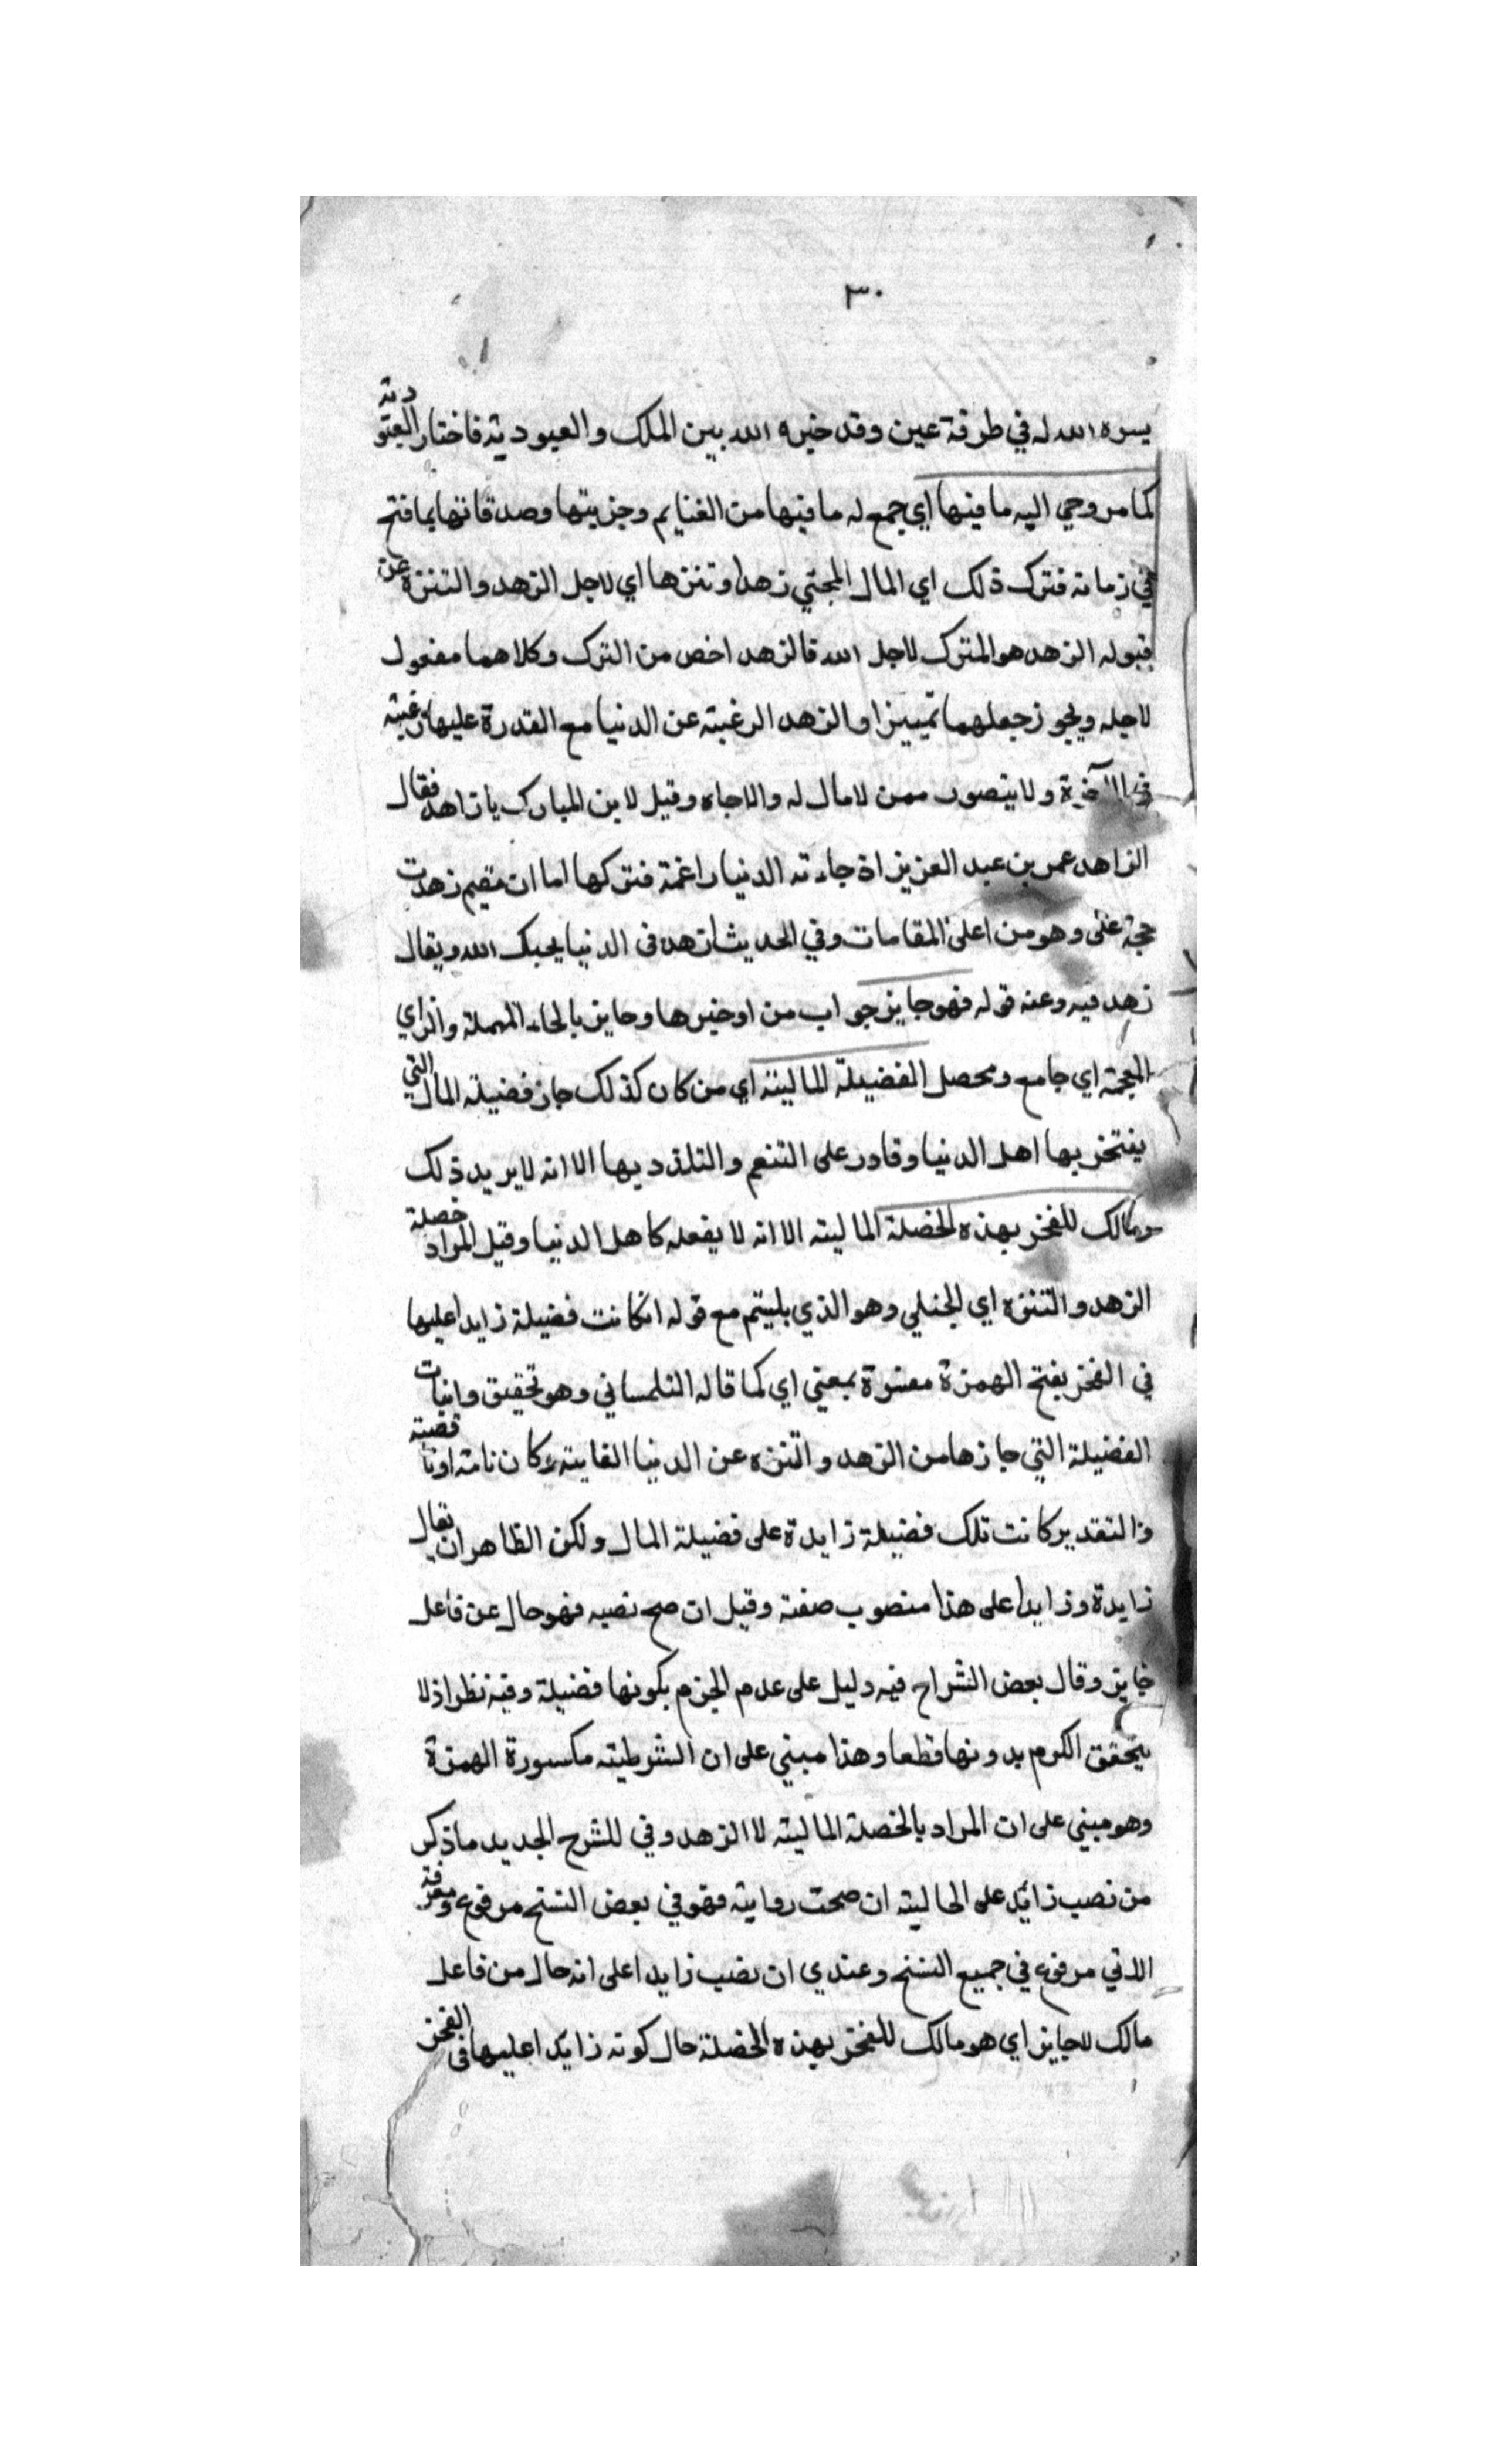 ٣٠
يسره الله له في طرفة عين وقد خيره الله بين الملك والعبودية فاختار العبودية
كما مر وجي اليه ما فيها اي جمع له ما فيها من الغنايم وجزيتها وصدقاتها بما فتح
في زمانه فترك ذلك اي المال المجتبي زهدا وتنزها اي لاجل الزهد والتنزه عن
قبوله الزهد هو المترك لاجل الله فالزهد اخص من الترك وكلاهما مفعول
لاجله ويجوز جعلهما تمييزا والزهد الرغبته عن الدنيا مع القدرة عليها رغبته
في الآخرة ولا يتصور ممن لا مال له والاجاه وقيل لابن المبارك يا زاهد فقال
الزاهد عمر بن عبد العزيز اذ جاءته الدنيا راغمة فتركها اما ان مقيم زهدت
حجة على وهو من اعلى المقامات وفي الحديث ازهد في الدنيا يحبك الله ويقال
زهد فيه وعنه قوله فهو جايز جواب من او خبرها وحايز بالحاء المهملة والزاي
المعجمة اي جامع ومحصل الفضيلة الماليته اي من كان كذلك جاز فضيلة المال التي
يفتخر بها اهل الدنيا وقادر على التنعم والتلذذ بها الا انه لا يريد ذلك
ومالك للفخر بهذه الخصلة الماليته الا انه لا يفعله كاهل الدنيا وقيل المراد خصلة
الزهد والتنزه اي لجنلي وهو الذي يليتم مع قوله انكانت فضيلة زايدا عليها
في الفخر بفتح الهمزة مفسرة بمعني اي كما قاله التلمساني وهو تحقيق واثبات
الفضيلة التي جازها من الزهد والتنزه عن الدنيا الفايته وكان تامته او ناقصته
والتقدير كانت تلك فضيلة زايدة على فضيلة المال ولكن الظاهر ان يقال
زايدة وزايدا على هذا منصوب صفته وقيل ان صح نصبه فهو حال عن فاعل
جايز وقال بعض الشراح فيه دليل على عدم الجزم بكونها فضيلة وفيه نظر اذ لا
يتحقق الكرم بدونها قطعا وهذا مبني على ان الشرطيته مكسورة الهمزة
وهو مبني على ان المراد بالخصلة الماليته لا الزهد وفي للشرح الجديد ما ذكر
من نصب زائد على الحاليته ان صحت روايته فهو في بعض النسخ مرفوع ومعرفة
الاتي مرفوع في جميع النسخ وعندي ان نصب زايدا على انه حال من فاعل
مالك لاجايز اي هو مالك للفخر بهذه الخصلة حال كونه زايدا عليها في الفخر